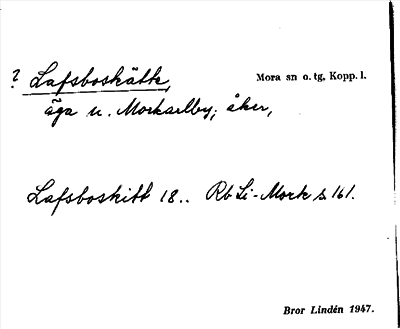 ? Lafsboskätt,
Mora sn o. tg, Kopp. l.
äga u. Morkarlby; åker,
Lafsboskitt 18.. Rb Li-Mork s. 161.
Bror Lindén 1947.